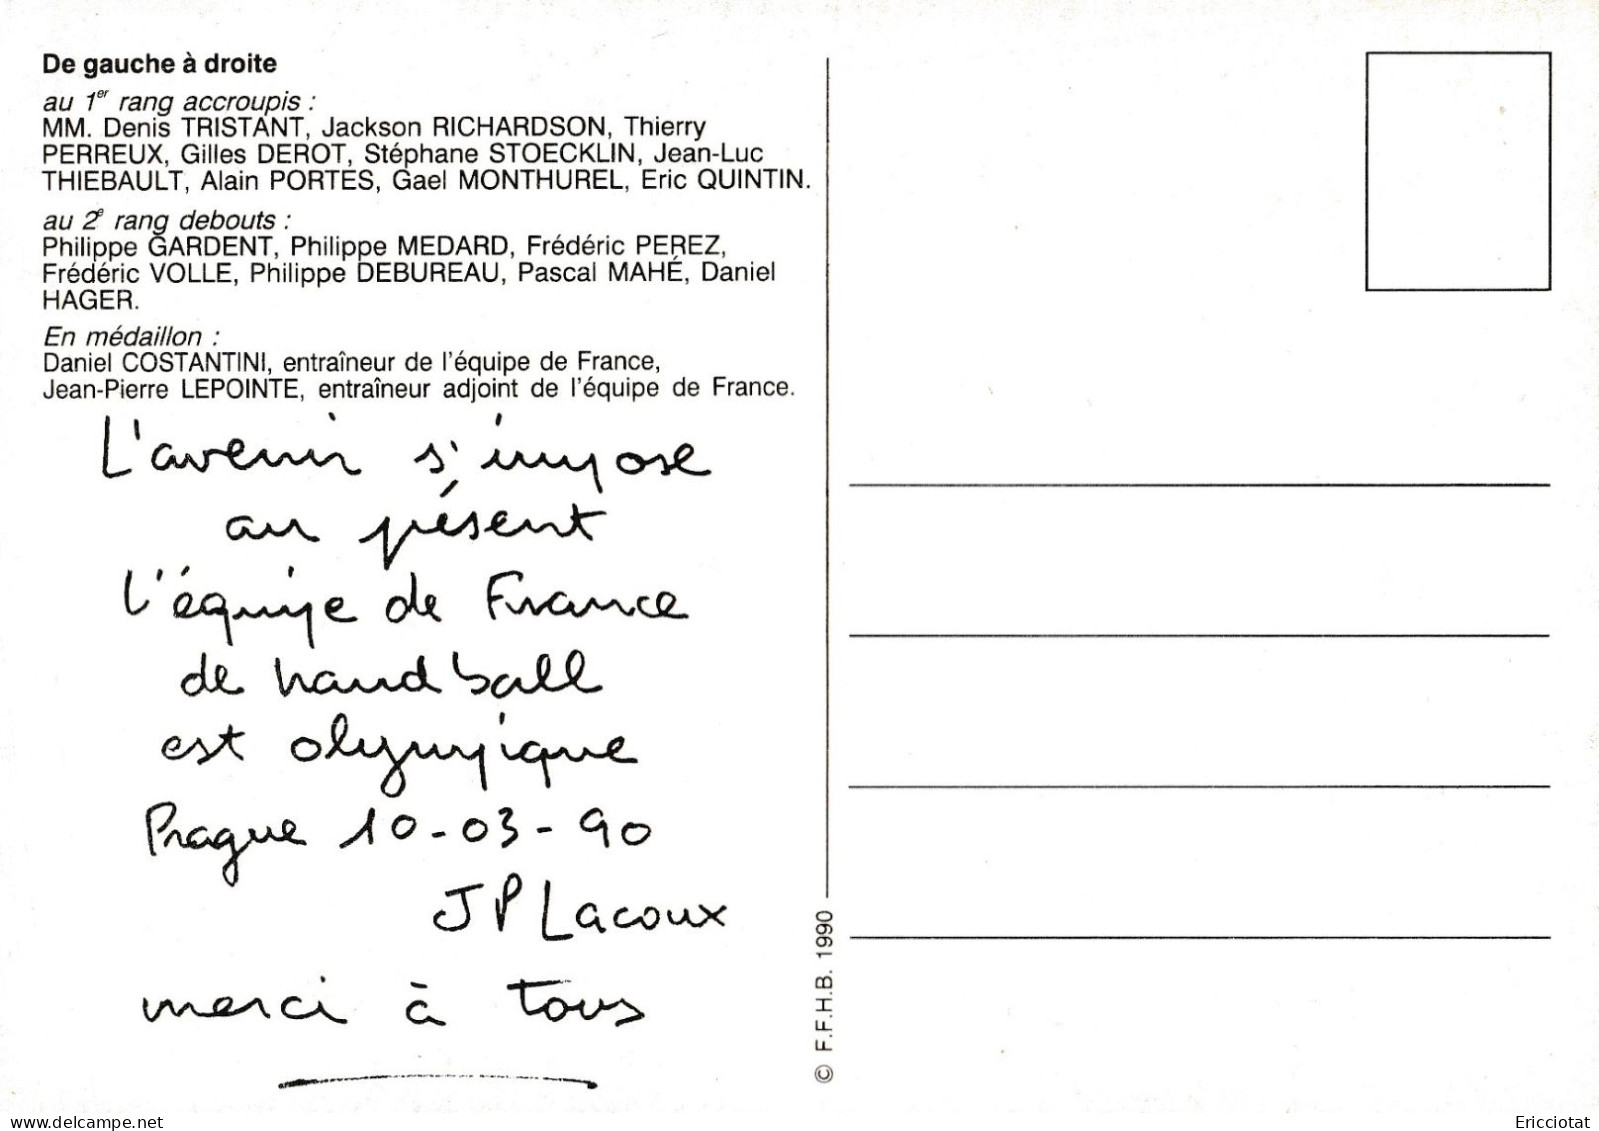 De gauche à droite
au 1er rang accroupis :
MM. Denis TRISTANT, Jackson RICHARDSON, Thierry
PERREUX, Gilles DEROT, Stéphane STOECKLIN, Jean-Luc
THIEBAULT, Alain PORTES, Gael MONTHUREL, Eric QUINTIN.
au 2e rang debouts :
Philippe GARDENT, Philippe MEDARD, Frédéric PEREZ,
Frédéric VOLLE, Philippe DEBUREAU, Pascal MAHÉ, Daniel
HAGER.
En médaillon :
Daniel COSTANTINI, entraîneur de l'équipe de France,
Jean-Pierre LEPOINTE, entraîneur adjoint de l'équipe de France.
L'avenir s'impose
au présent
l'équipe de France
de handball
est olympique
Prague 10-03-90
JP Lacoux
merci à tous
© F.F.H.B. 1990
delcampe.net
Ericciotat